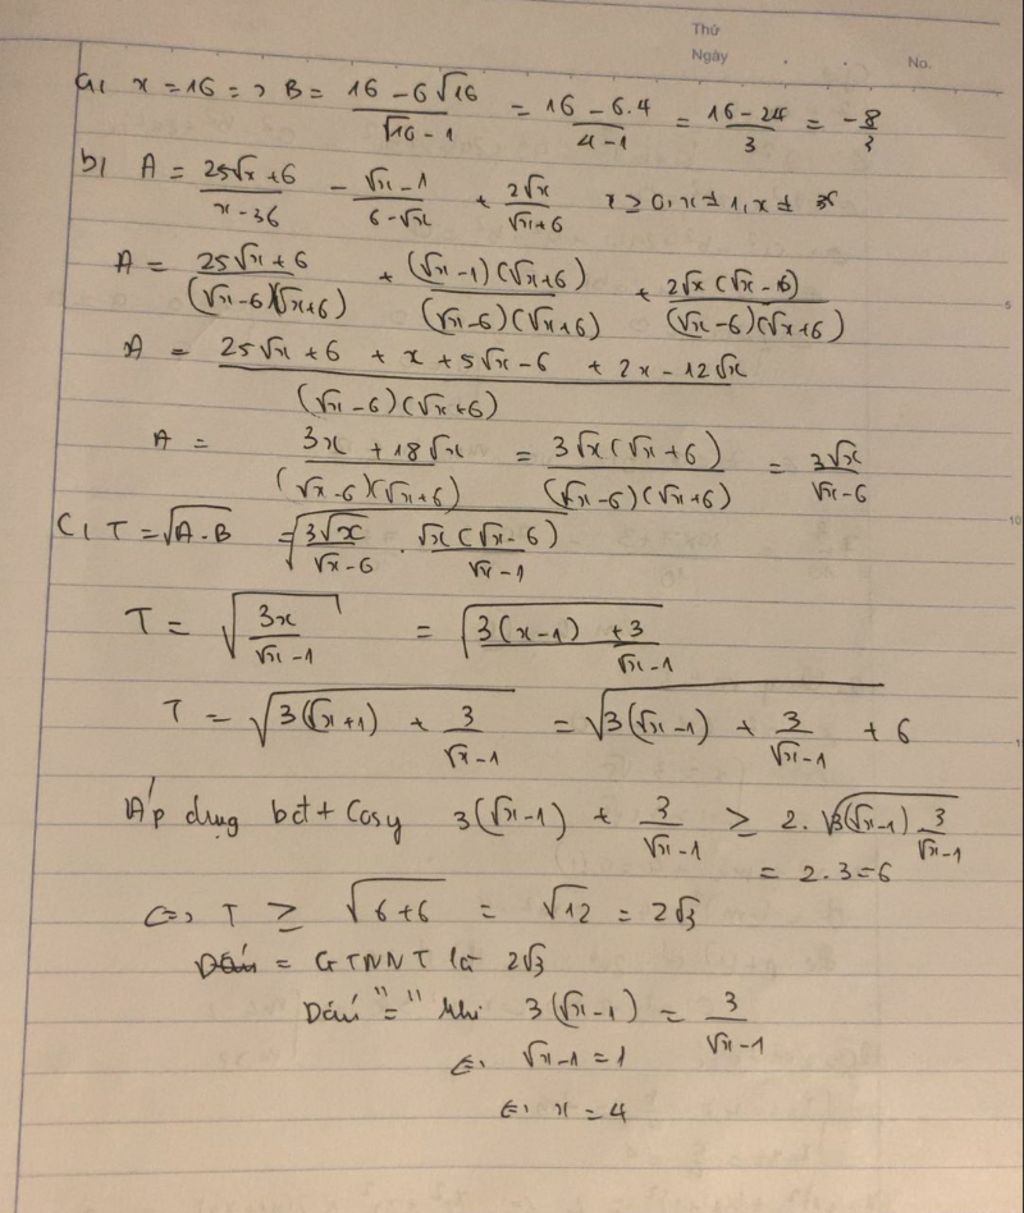 Thứ
Ngày . . No.
a, x = 16 => B = (16 - 6√16)/(√16 - 1) = (16 - 6.4)/(4 - 1) = (16 - 24)/3 = -8/3
b, A = (25√x + 6)/(x - 36) - (√x - 1)/(6 - √x) + 2√x/(√x + 6) x ≥ 0, x ≠ 1, x ≠ 36
A = (25√x + 6)/((√x - 6)(√x + 6)) + ((√x - 1)(√x + 6))/((√x - 6)(√x + 6)) + (2√x(√x - 6))/((√x - 6)(√x + 6))
A = (25√x + 6 + x + 5√x - 6 + 2x - 12√x)/((√x - 6)(√x + 6))
A = (3x + 18√x)/((√x - 6)(√x + 6)) = (3√x(√x + 6))/((√x - 6)(√x + 6)) = 3√x/(√x - 6)
5
C, T = √(A.B) = √(3√x/(√x - 6) . √x(√x - 6)/(√x - 1))
10
T = √(3x/(√x - 1)) = √((3(x - 1) + 3)/(√x - 1))
T = √(3(√x + 1) + 3/(√x - 1)) = √(3(√x - 1) + 3/(√x - 1) + 6)
Áp dụng bđt Cosy 3(√x - 1) + 3/(√x - 1) ≥ 2.√(3(√x - 1) 3/(√x - 1))
= 2.3 = 6
<=> T ≥ √(6 + 6) = √12 = 2√3
= GTNNT là 2√3
Dấu "=" khi 3(√x - 1) = 3/(√x - 1)
<=> √x - 1 = 1
<=> x = 4